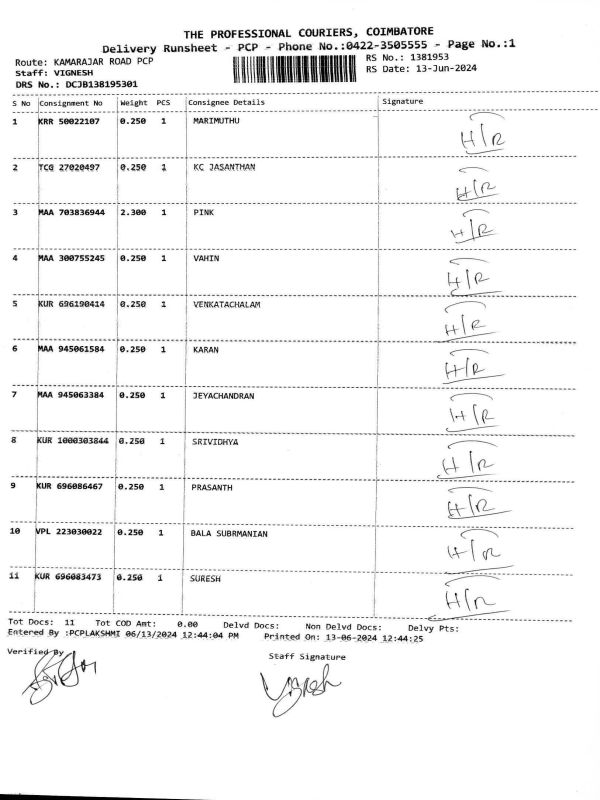 THE PROFESSIONAL COURIERS, COIMBATORE
Delivery Runsheet - PCP - Phone No.:0422-3505555 - Page No.:1
Route: KAMARAJAR ROAD PCP RS No.: 1381953
Staff: VIGNESH RS Date: 13-Jun-2024
DRS No.: DCJB138195301
S No Consignment No Weight PCS Consignee Details Signature
1 KRR 50022107 0.250 1 MARIMUTHU H/R
2 TCG 27020497 0.250 1 KC JASANTHAN H/R
3 MAA 703836944 2.300 1 PINK H/R
4 MAA 300755245 0.250 1 VAHIN H/R
5 KUR 696190414 0.250 1 VENKATACHALAM H/R
6 MAA 945061584 0.250 1 KARAN H/R
7 MAA 945063384 0.250 1 JEYACHANDRAN H/R
8 KUR 1000303844 0.250 1 SRIVIDHYA H/R
9 KUR 696086467 0.250 1 PRASANTH H/R
10 VPL 223030022 0.250 1 BALA SUBRMANIAN H/R
11 KUR 696083473 0.250 1 SURESH H/R
Tot Docs: 11 Tot COD Amt: 0.00 Delvd Docs: Non Delvd Docs: Delvy Pts:
Entered By :PCPLAKSHMI 06/13/2024 12:44:04 PM Printed On: 13-06-2024 12:44:25
Verified By Staff Signature
Vignesh